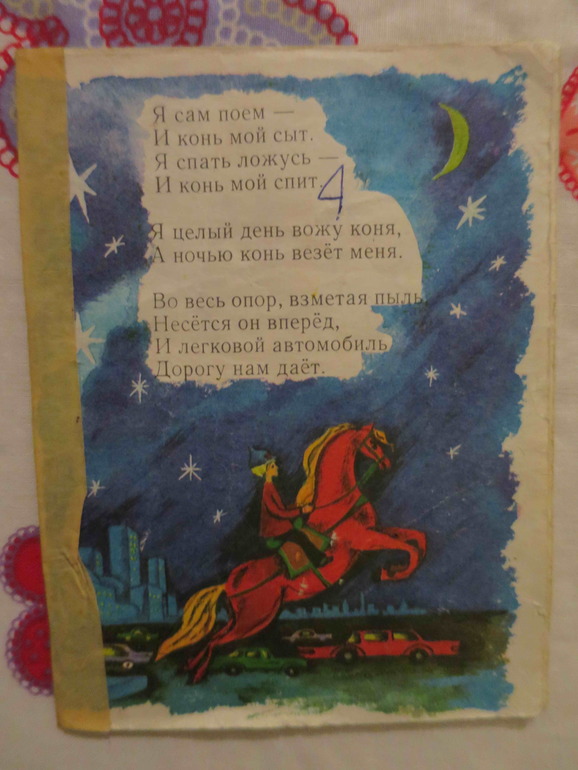 Я сам поем —
И конь мой сыт.
Я спать ложусь —
И конь мой спит.
4
Я целый день вожу коня,
А ночью конь везёт меня.
Во весь опор, взметая пыль,
Несётся он вперёд,
И легковой автомобиль
Дорогу нам даёт.